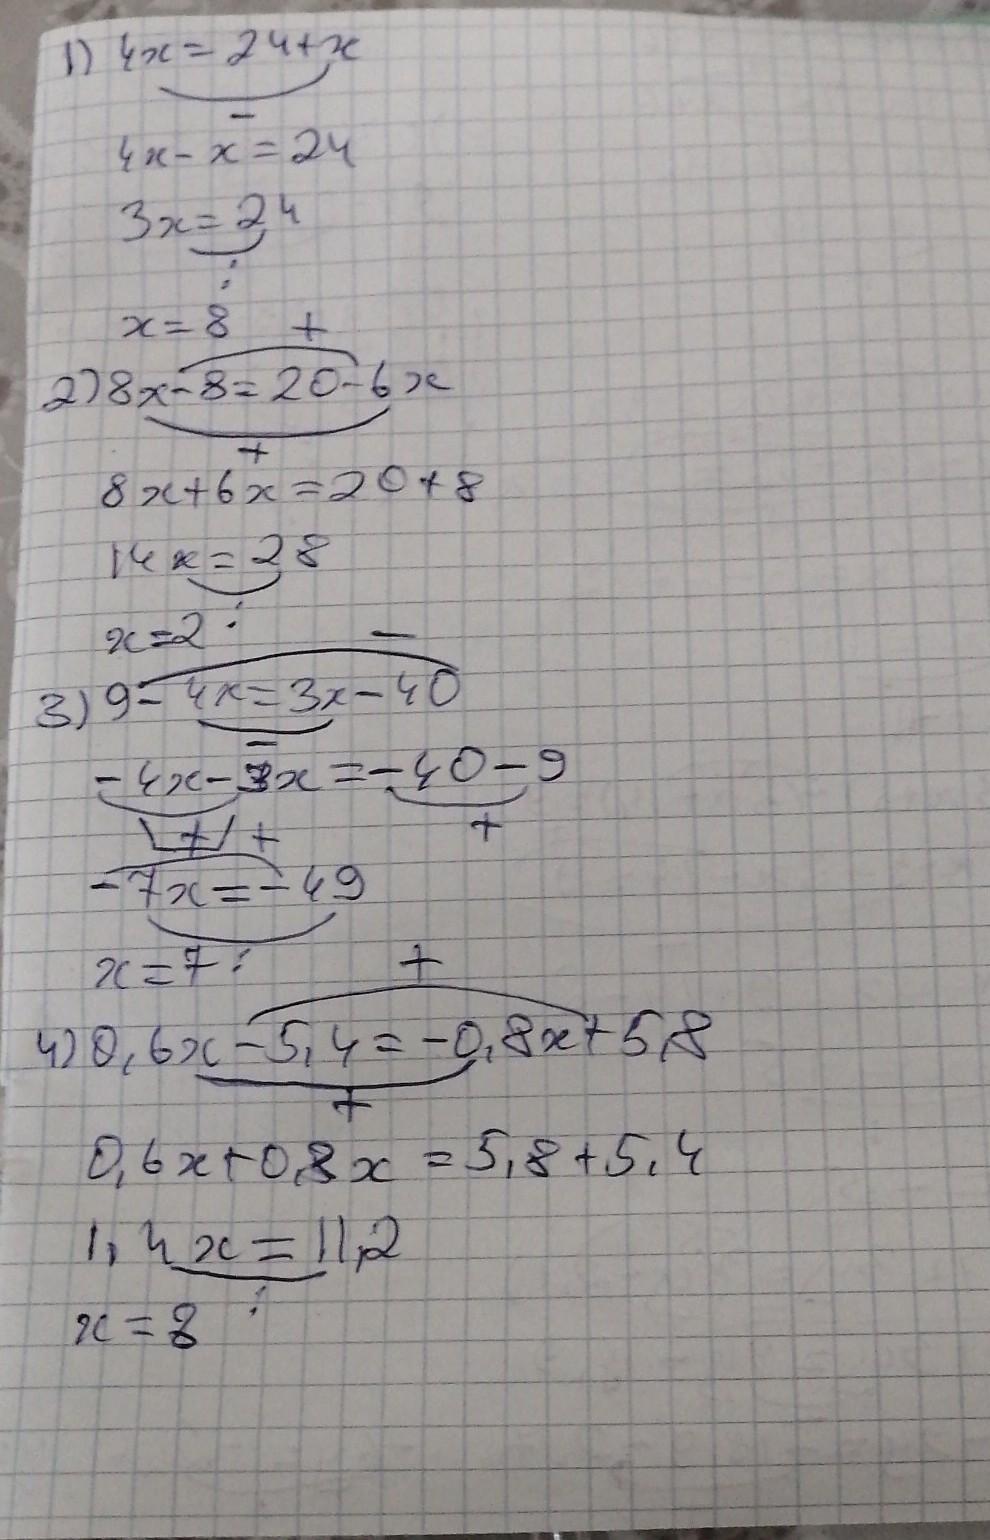 1) 4x = 24+x
−
4x − x = 24
3x = 24
:
x = 8
+
2) 8x − 8 = 20 − 6x
+
8x + 6x = 20 + 8
14x = 28
:
x = 2
−
3) 9 − 4x = 3x − 40
−
−4x − 3x = −40 − 9
+ + +
−7x = −49
:
x = 7
+
4) 0,6x − 5,4 = −0,8x + 5,8
+
0,6x + 0,8x = 5,8 + 5,4
1,4x = 11,2
:
x = 8